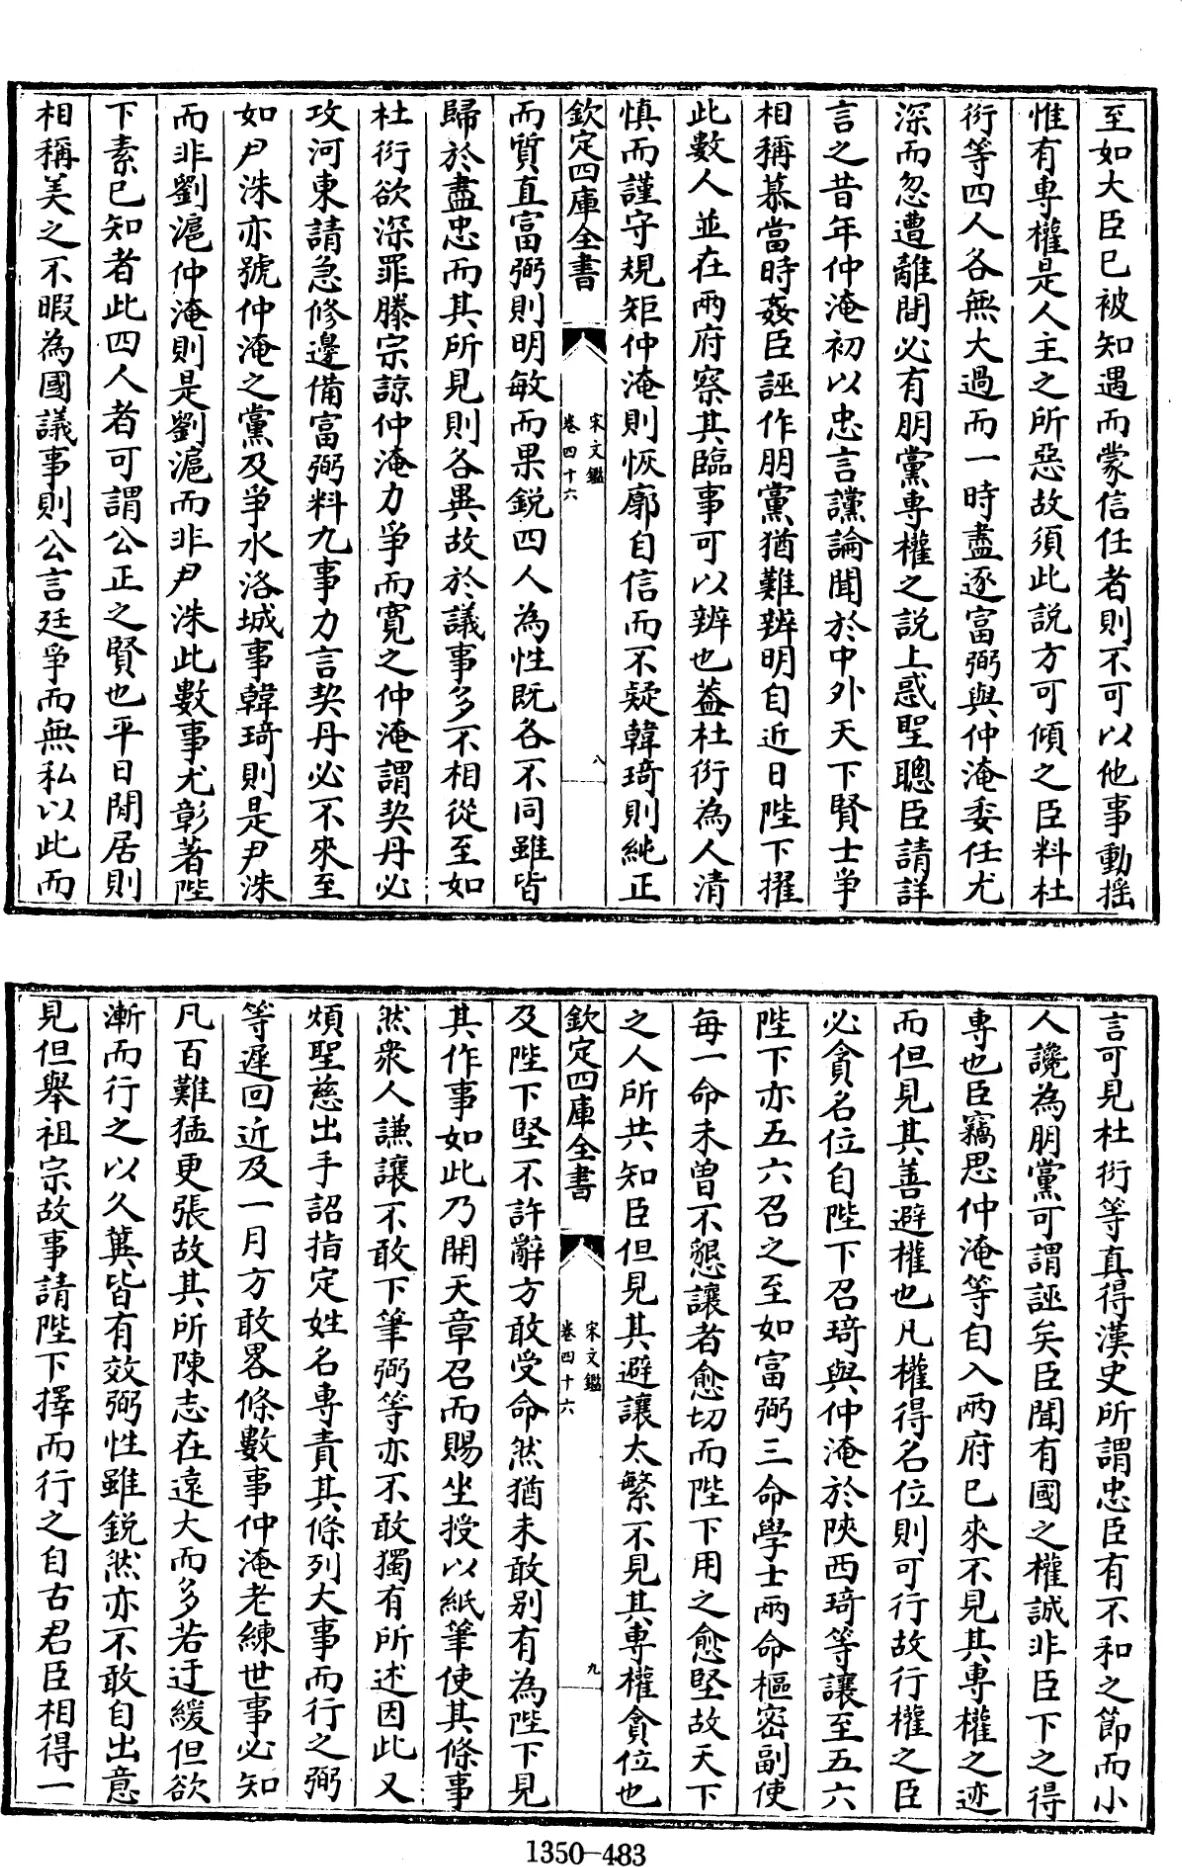 至如大臣已被知遇而蒙信任者則不可以他事動揺
惟有專權是人主之所惡故須此説方可傾之臣料杜
衍等四人各無大過而一時盡逐富弼與仲淹委任尤
深而忽遭離間必有朋黨専權之説上惑聖聰臣請詳
言之昔年仲淹初以忠言讜論聞於中外天下賢士爭
相稱慕當時姦臣誣作朋黨猶難辨明自近日陛下擢
此數人並在兩府察其臨事可以辨也葢杜衍為人清
慎而謹守規矩仲淹則恢廓自信而不疑韓琦則純正
欽定四庫全書
宋文鑑
卷四十六
八
而質直富弼則明敏而果鋭四人為性既各不同雖皆
歸於盡忠而其所見則各異故於議事多不相從至如
杜衍欲深罪滕宗諒仲淹力爭而寛之仲淹謂契丹必
攻河東請急修邊備富弼料九事力言契丹必不來至
如尹洙亦號仲淹之黨及爭水洛城事韓琦則是尹洙
而非劉滬仲淹則是劉滬而非尹洙此數事尤彰著陛
下素已知者此四人者可謂公正之賢也平日閒居則
相稱美之不暇為國議事則公言廷爭而無私以此而
言可見杜衍等真得漢史所謂忠臣有不和之節而小
人讒為朋黨可謂誣矣臣聞有國之權誠非臣下之得
専也臣竊思仲淹等自入兩府已來不見其専權之迹
而但見其善避權也凡權得名位則可行故行權之臣
必貪名位自陛下召琦與仲淹於陜西琦等讓至五六
陛下亦五六召之至如富弼三命學士兩命樞密副使
每一命未曾不懇讓者愈切而陛下用之愈堅故天下
之人所共知臣但見其避讓太繁不見其専權貪位也
欽定四庫全書
宋文鑑
卷四十六
九
及陛下堅不許辭方敢受命然猶未敢别有為陛下見
其作事如此乃開天章召而賜坐授以紙筆使其條事
然衆人謙讓不敢下筆弼等亦不敢獨有所述因此又
煩聖慈出手詔指定姓名専責其條列大事而行之弼
等遲回近及一月方敢畧條數事仲淹老練世事必知
凡百難猛更張故其所陳志在遠大而多若迂緩但欲
漸而行之以久冀皆有效弼性雖鋭然亦不敢自出意
見但舉祖宗故事請陛下擇而行之自古君臣相得一
1350-483